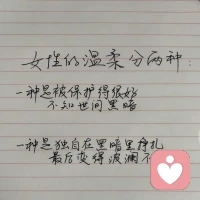 女性的温柔分两种:
一种是被保护得很好
不知世间黑暗
一种是独自在黑暗里挣扎
最后变得波澜不